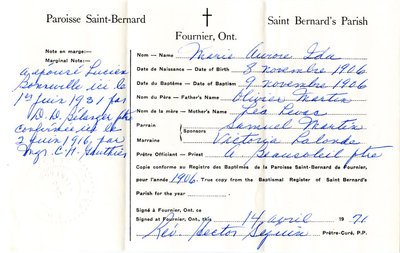 Paroisse Saint-Bernard
Saint Bernard's Parish
Fournier, Ont.
Note en marge:—
Marginal Note:—
a épousé Lucien
Bonneville ici le
1er juin 1931 par
D. D. Bélanger ptre
confirmée ici le
2 juin 1916, par
Mgr. C. H. Gauthier
Nom — Name — Marie Aurore Ida
Date de Naissance — Date of Birth — 8 novembre 1906
Date du Baptême — Date of Baptism — 9 novembre 1906
Nom du Père — Father's Name — Olivier Martin
Nom de la mère — Mother's Name — Léa Levac
Parrain Samuel Martin
Sponsors
Marraine Victoria Lalonde
Prêtre Officiant — Priest — A. Beausoleil ptre
Copie conforme au Registre des Baptêmes de la Paroisse Saint-Bernard de Fournier,
pour l'année 1906. True copy from the Baptismal Register of Saint Bernard's
Parish for the year
Signé à Fournier, Ont. ce
Signed at Fournier, Ont., this 14 avril 1971
Rév. Hector Séguin Prêtre-Curé, P.P.